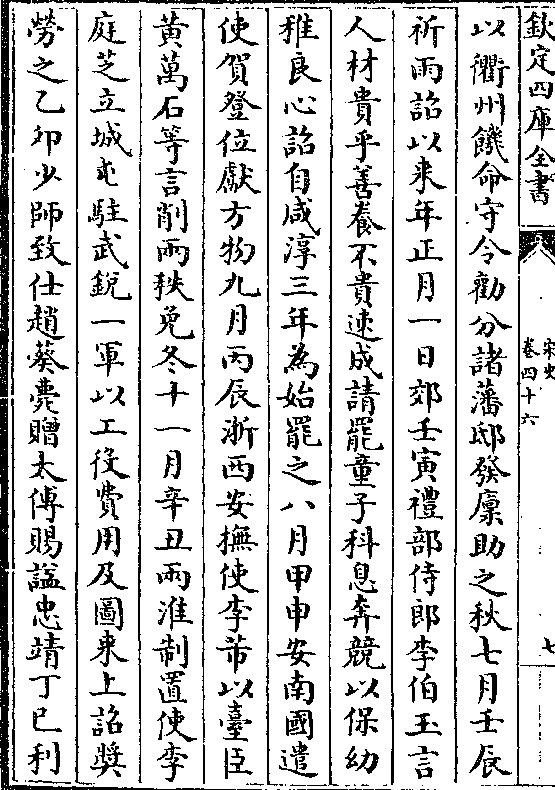 欽定四庫全書
宋史
卷四十六
七
以衢州饑命守令勸分諸藩邸發廩助之秋七月壬辰
祈雨詔以來年正月一日郊壬寅禮部侍郎李伯玉言
人材貴乎善養不貴速成請罷童子科息奔競以保幼
稚良心詔自咸淳三年為始罷之八月甲申安南國遣
使賀登位獻方物九月丙辰浙西安撫使李芾以臺臣
黄萬石等言削兩秩免冬十一月辛丑兩淮制置使李
庭芝立城屯駐武銳一軍以工役費用及圖來上詔奬
勞之乙卯少師致仕趙葵薨贈太傅賜諡忠靖丁巳利